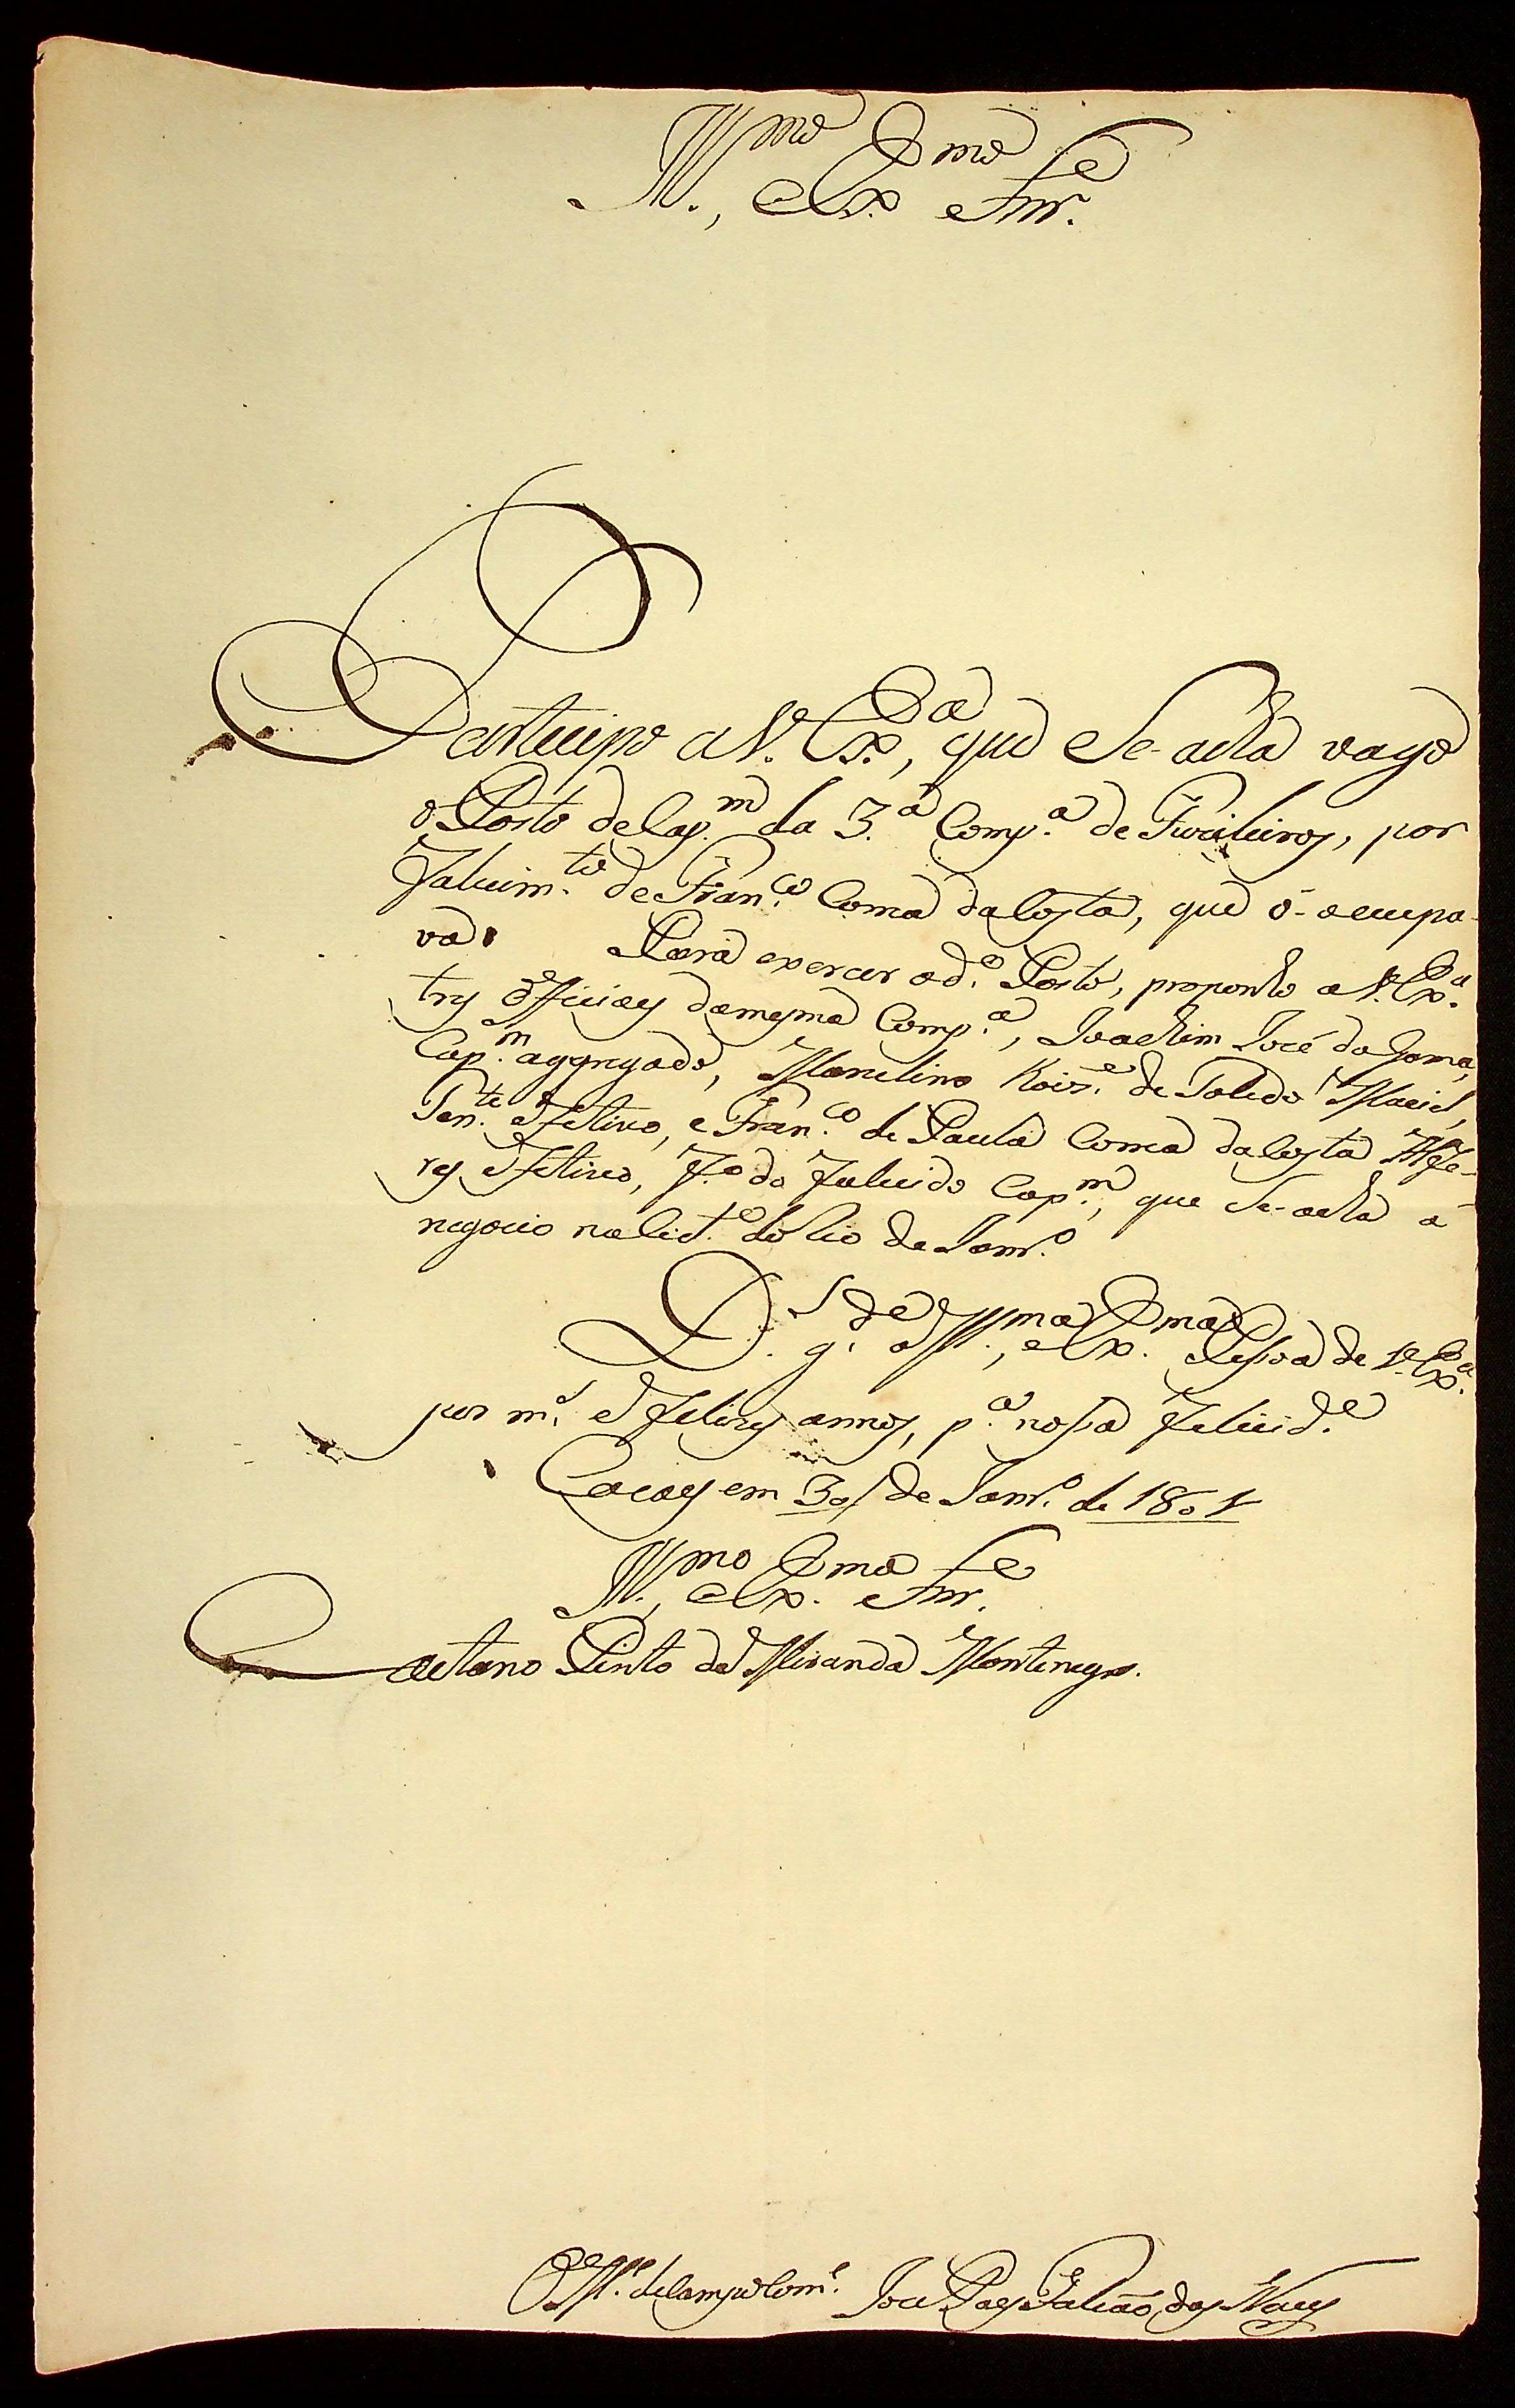 Ill.mo, e Ex.mo Snr.e
Participo a V. Ex.a, que Se-acha vago
o Posto de Cap.m da 3.a Comp.a de Fuzileiros, por
falecim.to de Fran.co Correa da Costa, que o-occupa-
va. Para exercer o d.o Posto, proponho a V. Ex.a
tres Officiaes da mesma Comp.a, Joachim José da Gama,
Cap.m aggregado, Marcelino Roiz.e de Toledo Maciel,
Ten.te Effetivo, e Fran.co de Paula Correa da Costa Alfe-
res Effetivo, f.o do falecido Cap.m, que Se-acha a
negocio na Cid.e do Rio de Janr.o
D.s g.de a Ill.ma, e Ex.ma Pessoa de V. Ex.a
por m.s e felices annos, p.a nossa felicid.e
em 30 de Janr.o de 1801
Ill.mo, e Ex.mo Snr.e
Caetano Pinto de Miranda Montenegro.
O M.e de Campo Com.e José Paes Falcão das Neves